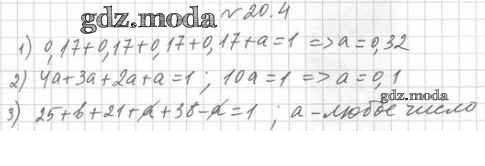 gdz.moda
№20.4
1) 0,17+0,17+0,17+0,17+a=1 => a=0,32
2) 4a+3a+2a+a=1 ; 10a=1 => a=0,1
gdz.moda
3) 25+b+21+a+38-a=1 ; a-любое число
gdz.moda